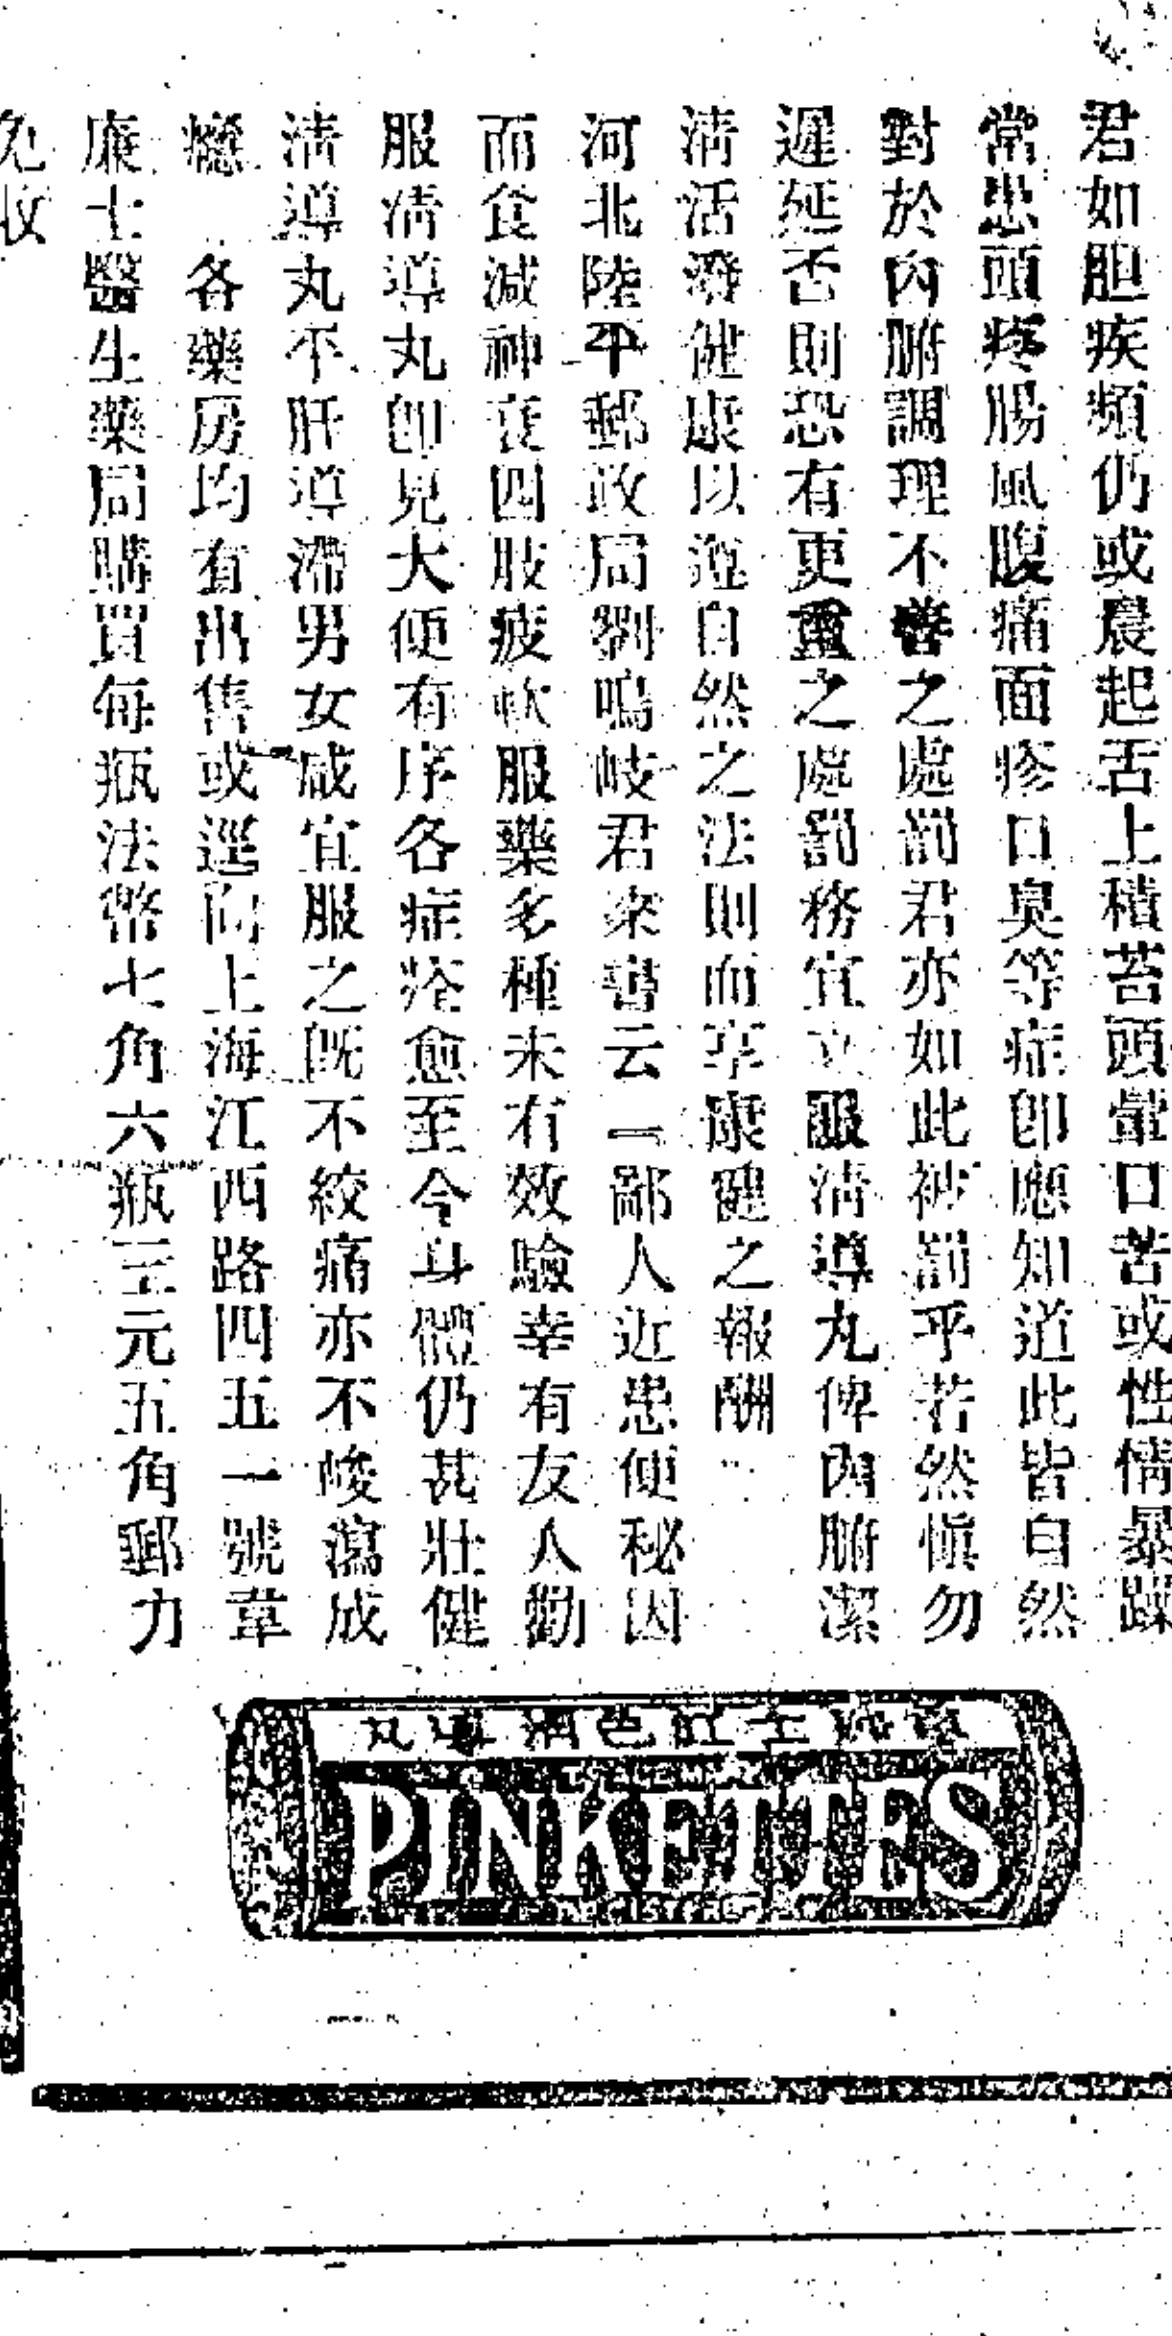 君如胆疾頻仍或晨起舌上積苔頭暈口苦或性情暴躁
常患頭疼腸風腹痛面疹口臭等症卽應知道此皆自然
對於內腑調理不善之處罰君亦如此被罰乎若然愼勿
遲延否則恐有更重之處罰務宜立服清導丸俾內腑潔
清活潑健康以遵自然之法則而享康健之報酬
河北陸平郵政局劉鳴岐君來書云一鄙人近患便秘因
而食減神衰四肢疲軟服藥多種未有效驗幸有友人勸
服清導丸卽見大便有序各症痊愈至今身體仍甚壯健
清導丸平肝導滯男女咸宜服之既不絞痛亦不峻瀉成
癮 各藥房均有出售或逕向上海江西路四五一號韋
廉士醫生藥局購買每瓶法幣七角六瓶三元五角郵力
免收
丸導清色紅士
PINKETTES